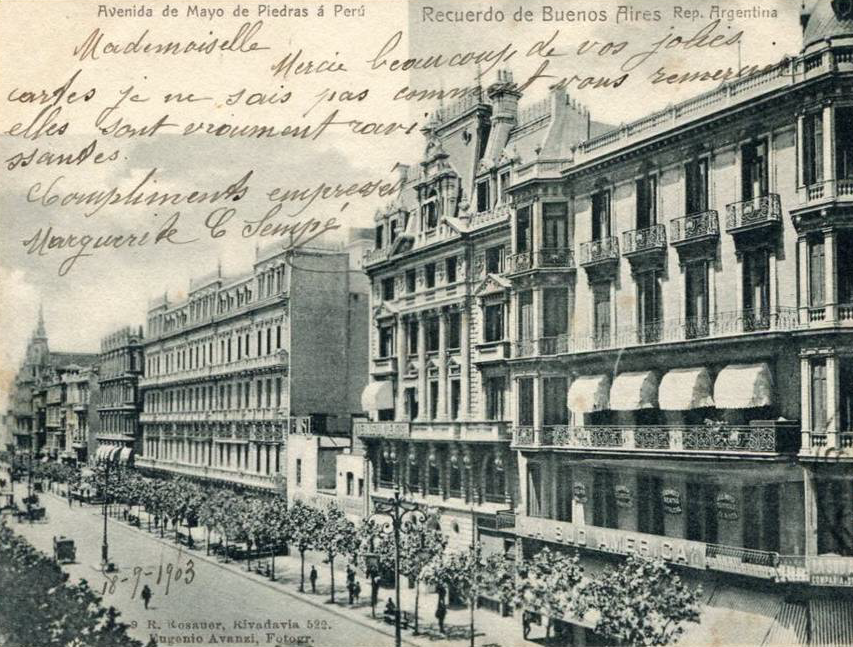 Avenida de Mayo de Piedras á Perú
Recuerdo de Buenos Aires Rep. Argentina
Mademoiselle
Mercie beaucoup de vos jolies
cartes je ne sais pas comment vous remercier
elles sont vraument ravi
ssantes.
Compliments empressés
Marguerite C Sempé
SUD AMERICA
18-9-1903
9 R. Rosauer, Rivadavia 522.
Eugenio Avanzi, Fotogr.